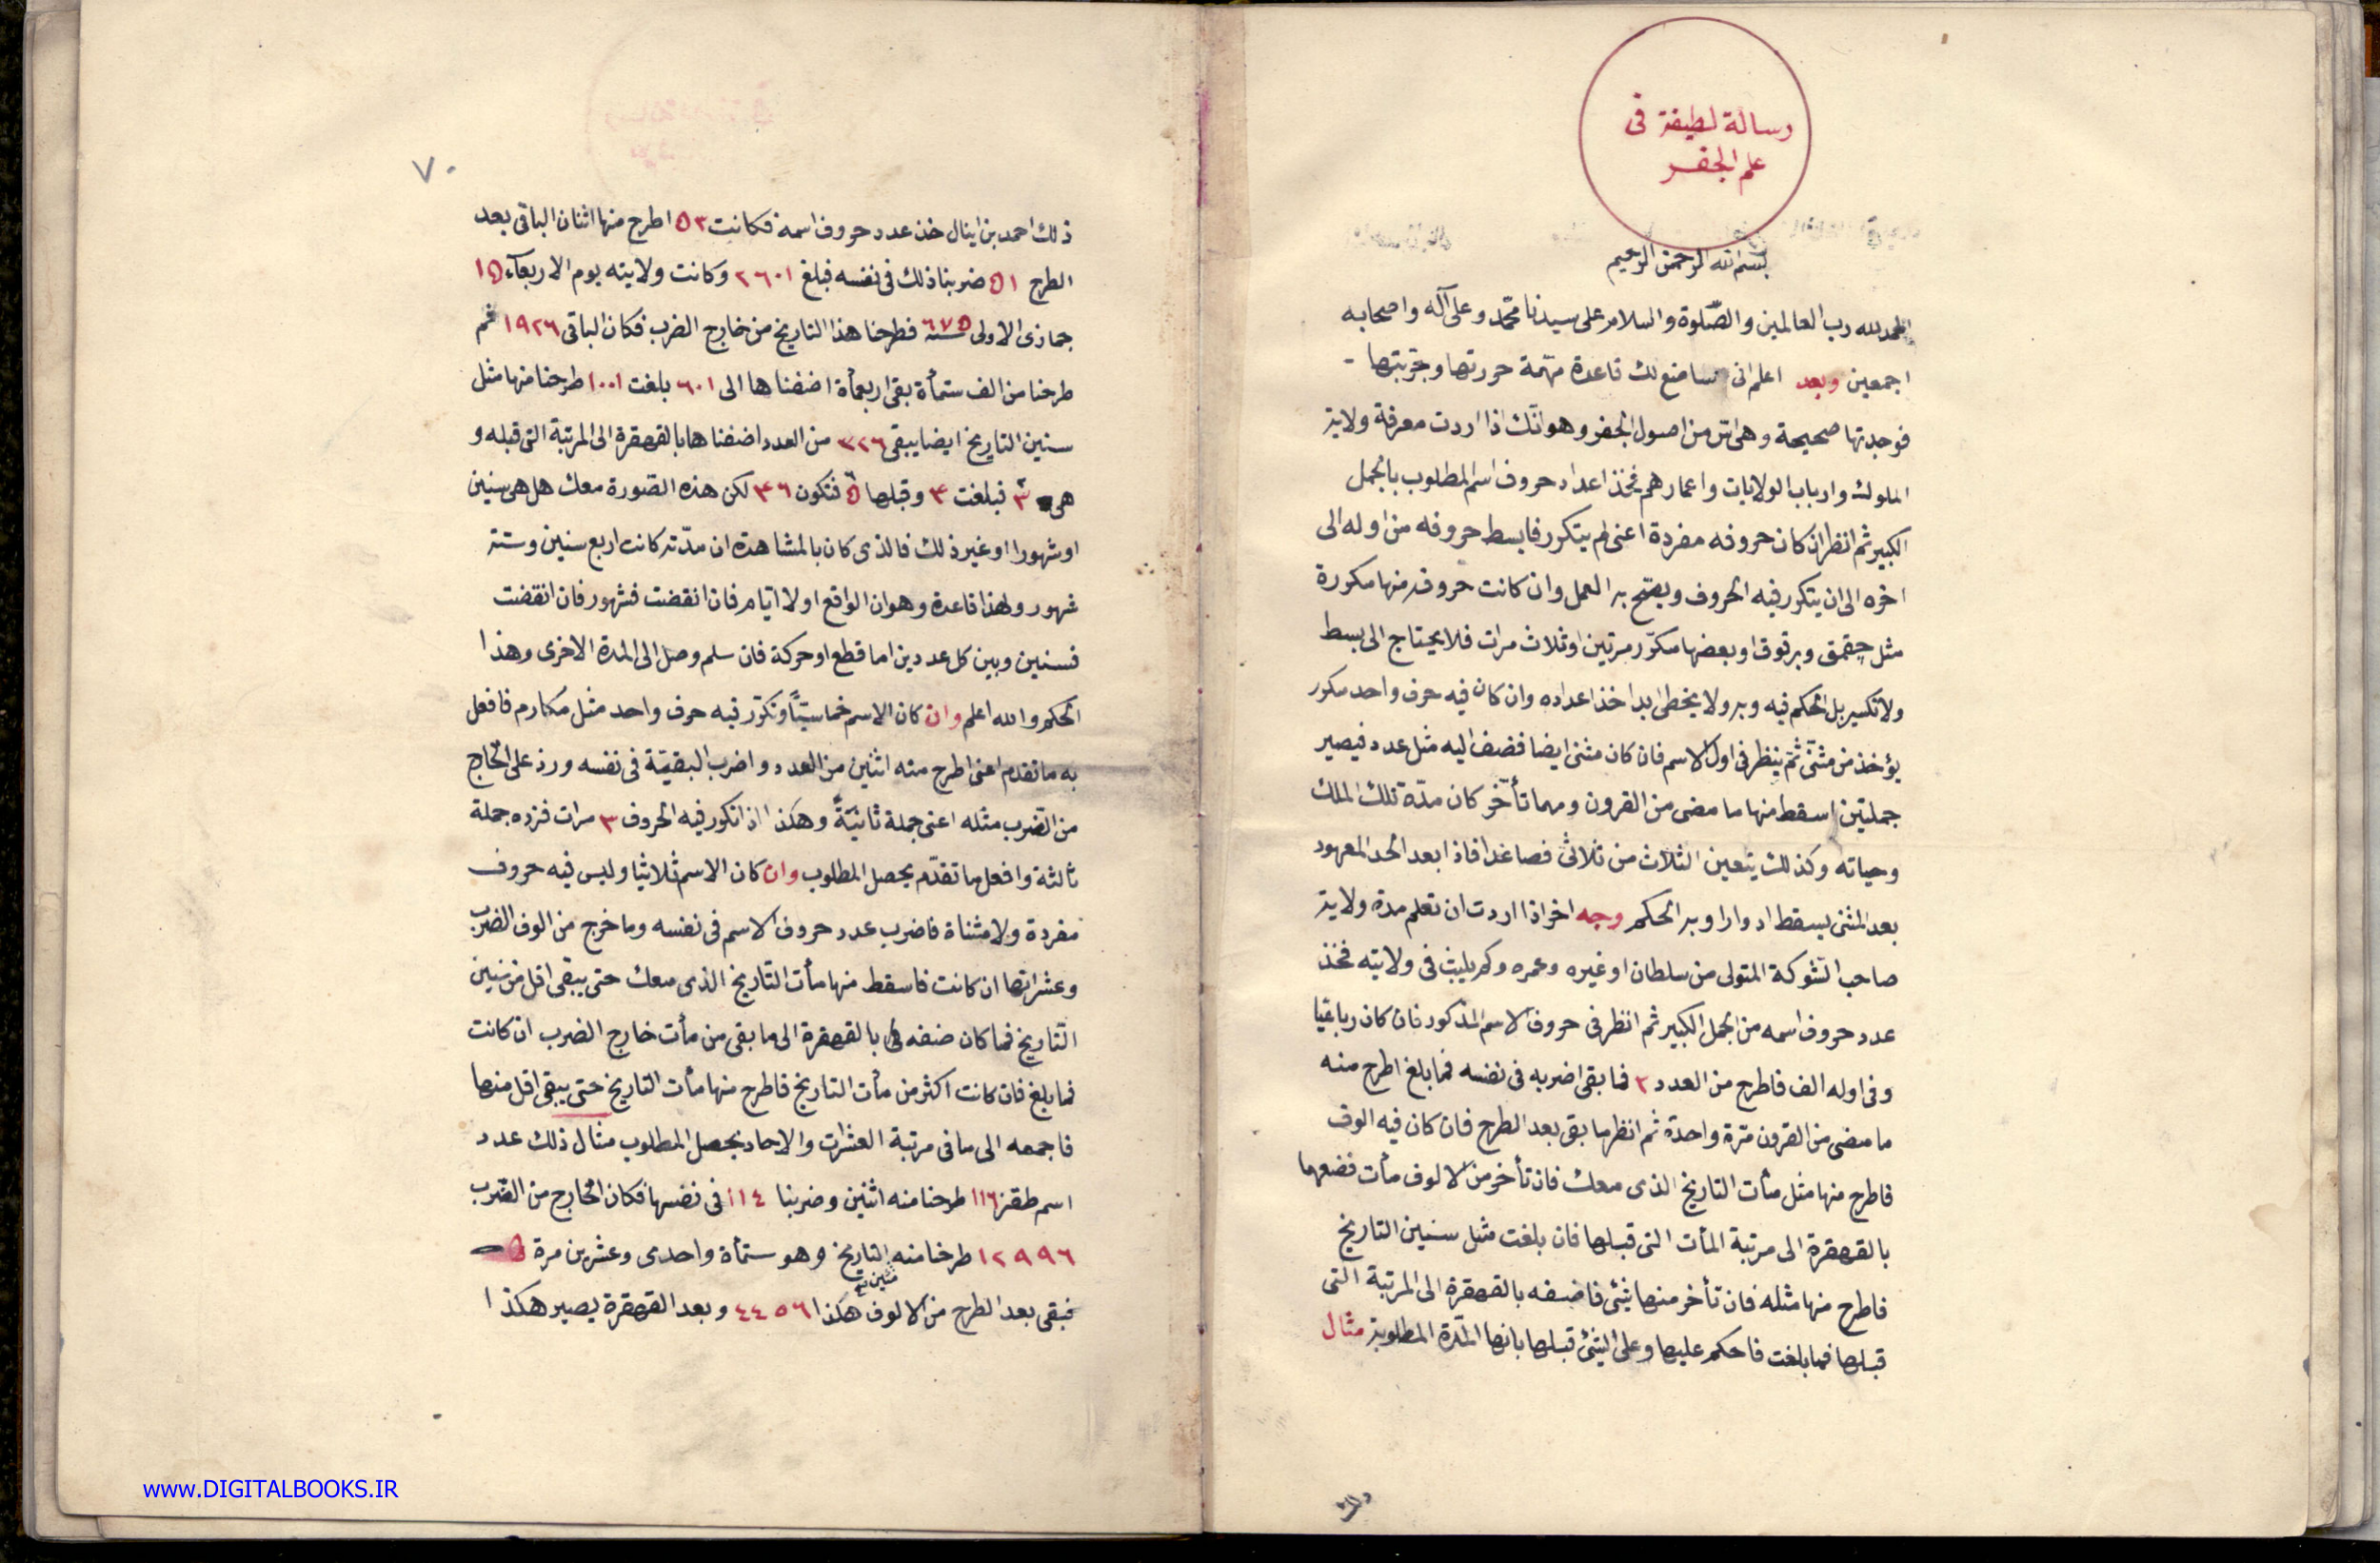 رسالة لطيفة فى
علم الجفر
بسم الله الرحمن الرحيم
الحمد لله رب العالمين والصّلوة والسلام على سيدنا محمّد وعلى آله واصحابه
اجمعين وبعد اعلم انى ساضع لك قاعدة مهّمة حررتها وجربتها -
فوجدتها صحيحة وهى اس من اصول الجفر وهو انّك اذا اردت معرفة ولاية
الملوك وارباب الولايات واعمارهم فخذ اعداد حروف اسم المطلوب بالجمل
الكبير ثم انظر ان كان حروفه مفردة اعنى لم يتكرر فابسط حروفه من اوله الى
اخره الى ان يتكرر فيه الحروف ويصّح به العمل وان كانت حروفه منها مكررة
مثل جقمق وبرقوق او بعضها مكرّر مرتين او ثلاث مرات فلا يحتاج الى بسط
ولا تكسير بل الحكم فيه وبه ولا يخطى ابدا خذ اعداده وان كان فيه حرف واحد مكرر
يؤخذ من مثنّى ثمّ ينظر فى اول الاسم فان كان مثنى ايضا فضف اليه مثل عدد فيصير
جملتين اسقط منها ما مضى من القرون ومهما تأخّر كان مدّة تلك الملك
وحياته وكذلك يتعين الثلاث من ثلاث فصاعدا فاذا بعد الحد المعهود
بعد المثنى يسقط ادوارا وبه الحكم وجه اخر اذا اردت ان تعلم مدة ولاية
صاحب الشوكة المتولى من سلطان او غيره وعمره وكم يلبث فى ولايته فخذ
عدد حروف اسمه من الجمل الكبير ثم انظر فى حروف الاسم المذكور فان كان رباعيّا
وفى اوله الف فاطرح من العدد ٢ فما بقى اضربه فى نفسه فما بلغ اطرح منه
ما مضى من القرون مرّة واحدة ثم انظر ما بقى بعد الطرح فان كان فيه الوف
فاطرح منها مثل مئات التاريخ الذى معك فان تأخر من الالوف مأت فضعها
بالقهقرة الى مرتبة المأت التى قبلها فان بلغت مثل سنين التاريخ
فاطرح منها مثله فان تأخر منها شئ فاضفه بالقهقرة الى المرتبة التى
قبلها فما بلغت فاحكم عليها وعلى الشئ قبلها بانها المّدة المطلوبة مثال
٧٠
ذلك احمد بن اينال خذ عدد حروف اسمه فكانت ٥٣ اطرح منها اثنان الباقى بعد
الطرح ٥١ ضربنا ذلك فى نفسه فبلغ ٢٦٠١ وكانت ولايته يوم الاربعآء ١٥
جمادى الاولى سنة ٦٧٥ فطرحنا هذا التاريخ من خارج الضرب فكان الباقى ١٩٢٦ ثم
طرحنا من الف ستمأة بقى اربعمأة اضفناها الى ٦٠١ بلغت ١٠٠١ طرحنا منها مثل
سنين التاريخ ايضا يبقى ٣٢٦ من العدد اضفناها بالقهقرة الى المرتبة التى قبله و
هى ٣ فبلغت ٣ وقبلها ٥ فتكون ٤٦ لكن هذه الصّورة معك هل هى سنين
او شهورا او غير ذلك فالذى كان بالمشاهدة ان مدّته كانت اربع سنين وستة
شهور ولهذا قاعدة وهو ان الواقع اولا ايام فان انقضت فشهور فان انقضت
فسنين وبين كل عددين اما قطع او حركة فان سلم وصل الى المدة الاخرى وهذا
الحكم والله اعلم وان كان الاسم خماسيّاً وتكرّر فيه حرف واحد مثل مكارم فافعل
به ما تقدم اعنى اطرح منه اثنين من العدد واضرب البقيّة فى نفسه وزد على الخارج
من الضرب مثله اعنى جملة ثانيّةً وهكذا اذا تكرر فيه الحروف ٣ مرات فزده جملة
ثالثة وافعل ما تقدّم يحصل المطلوب وان كان الاسم ثلاثيا وليس فيه حروف
مفردة ولا مثناة فاضرب عدد حروف الاسم فى نفسه وما خرج من الوف الضرب
وعشراتها ان كانت فاسقط منها مأت التاريخ الذى معك حتى يبقى اقل من سنين
التاريخ فما كان ضفه بالقهقرة الى ما بقى من مأت خارج الضرب ان كانت
فما بلغ فان كانت اكثر من مأت التاريخ فاطرح منها مأت التاريخ حتى يبقى اقل منها
فاجمعه الى ما فى مرتبة العشرات والاحاد يحصل المطلوب مثال ذلك عدد
اسم طقز ١١٦ طرحنا منه اثنين وضربنا ١١٤ فى نفسها فكان الخارج من الضرب
١٢٩٩٦ طرحنا منه التاريخ وهو ستمأة واحدى وعشرين مرة
فبقى بعد الطرح من الالوف هكذا ٤٤٥٦ وبعد القهقرة يصير هكذا
www.DIGITALBOOKS.IR